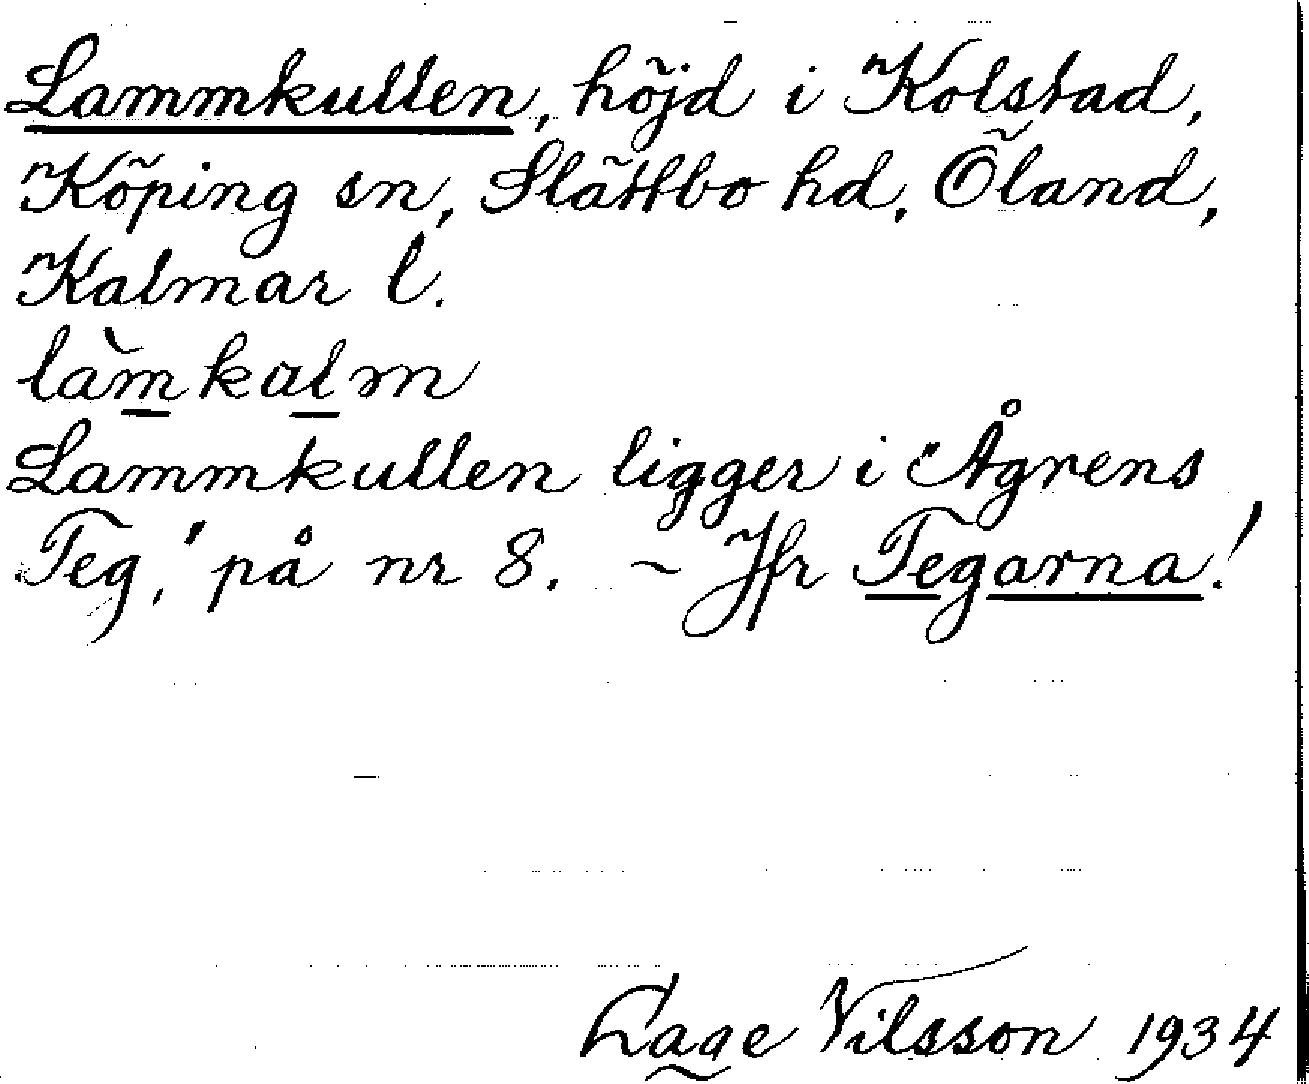 Lammkullen, höjd i Kolstad,
Köping sn, Slättbo hd, Öland,
Kalmar l.
làmkalm
Lammkullen ligger i "Ågrens
Teg," på nr 8. ~ Jfr Tegarna!
Lage Nilsson 1934